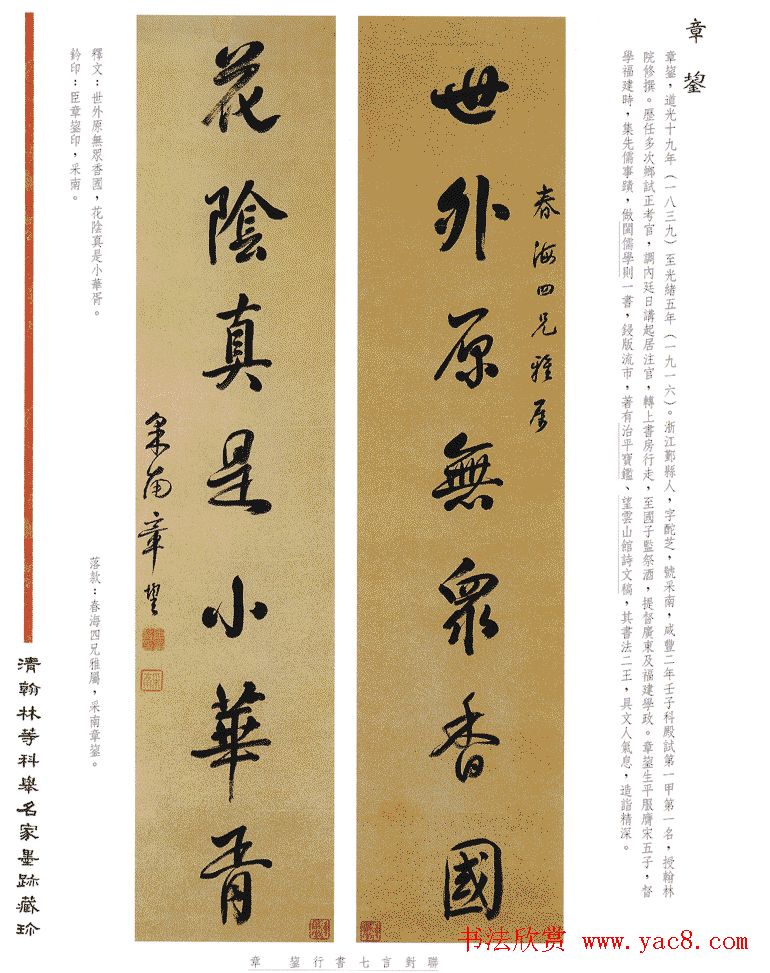 章鋆
章鋆，道光十九年（一八三九）至光緒五年（一九一六）。浙江鄞縣人，字酡芝，號采南，咸豐二年壬子科殿試第一甲第一名，授翰林
院修撰。歷任多次鄉試正考官，調內廷日講起居注官，轉上書房行走，至國子監祭酒，提督廣東及福建學政。章鋆生平服膺宋五子，督
學福建時，集先儒事蹟，倣閩儒學則一書，鋟版流市，著有治平寶鑑、望雲山館詩文稿，其書法二王，具文人氣息，造詣精深。
春海四兄雅屬
世外原無眾香國
花陰真是小華胥
采南章鋆
釋文：世外原無眾香國，花陰真是小華胥。
落款：春海四兄雅屬，采南章鋆。
鈐印：臣章鋆印，采南。
清翰林等科舉名家墨跡藏珍
章鋆行書七言對聯
书法欣赏 www.yac8.com